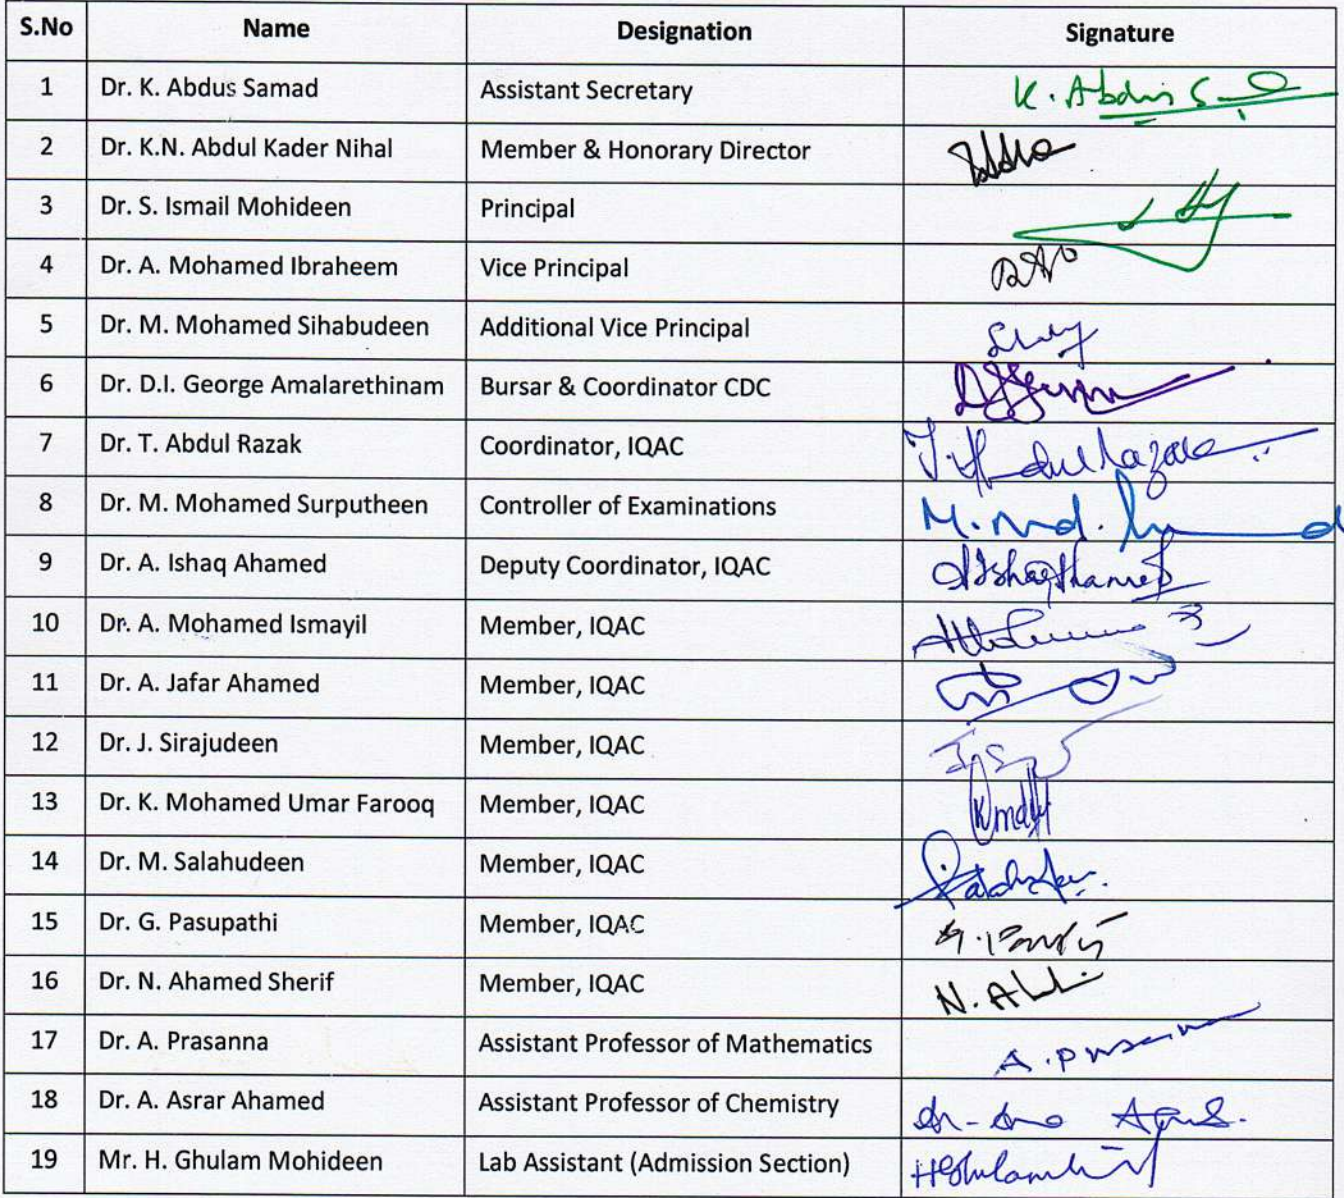 S.No Name Designation Signature
1 Dr. K. Abdus Samad Assistant Secretary K. Abdus
2 Dr. K.N. Abdul Kader Nihal Member & Honorary Director
3 Dr. S. Ismail Mohideen Principal
4 Dr. A. Mohamed Ibraheem Vice Principal
5 Dr. M. Mohamed Sihabudeen Additional Vice Principal
6 Dr. D.I. George Amalarethinam Bursar & Coordinator CDC
7 Dr. T. Abdul Razak Coordinator, IQAC T. Abdul Razak
8 Dr. M. Mohamed Surputheen Controller of Examinations M. Md.
9 Dr. A. Ishaq Ahamed Deputy Coordinator, IQAC A Ishaq Ahamed
10 Dr. A. Mohamed Ismayil Member, IQAC
11 Dr. A. Jafar Ahamed Member, IQAC
12 Dr. J. Sirajudeen Member, IQAC
13 Dr. K. Mohamed Umar Farooq Member, IQAC
14 Dr. M. Salahudeen Member, IQAC
15 Dr. G. Pasupathi Member, IQAC
16 Dr. N. Ahamed Sherif Member, IQAC N.
17 Dr. A. Prasanna Assistant Professor of Mathematics A.
18 Dr. A. Asrar Ahamed Assistant Professor of Chemistry
19 Mr. H. Ghulam Mohideen Lab Assistant (Admission Section)